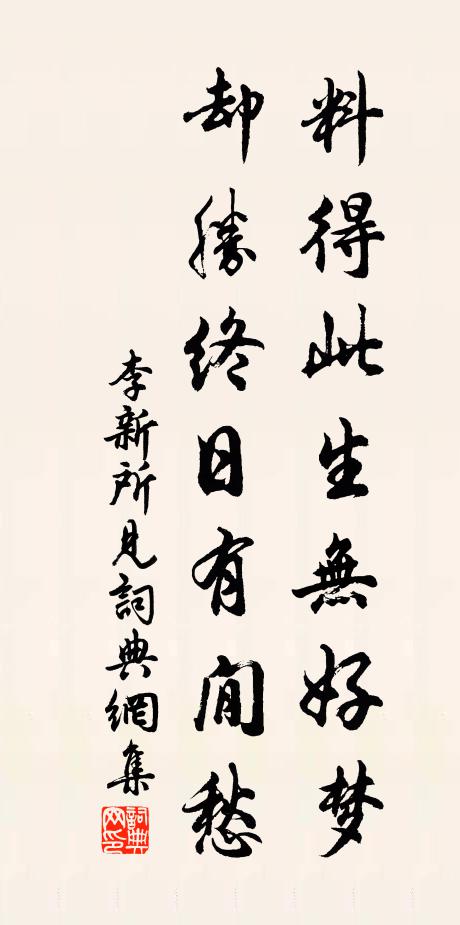 料得此生無好梦
却勝終日有閒愁
李新所見詞典網集
詞典网印